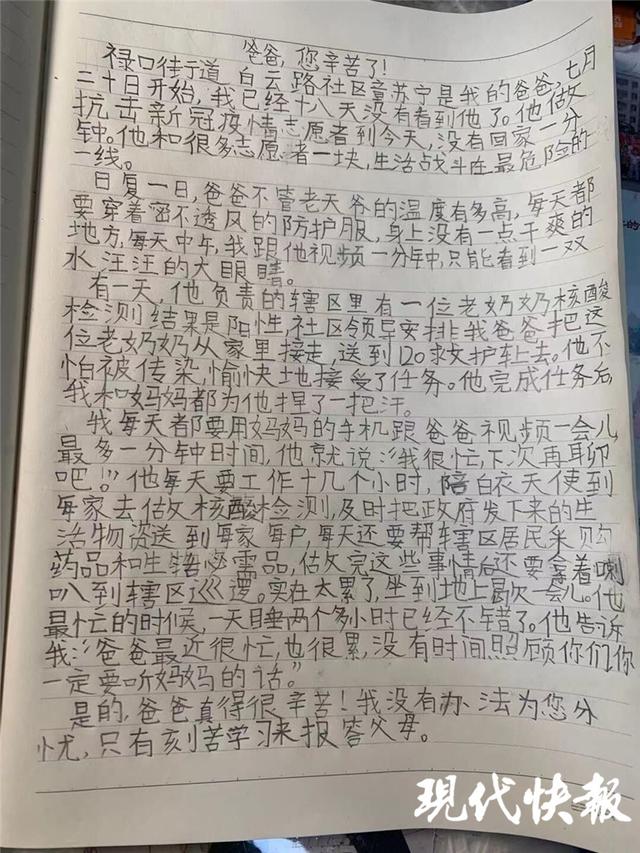 爸爸,您辛苦了!
禄口街于道 白云路社区章苏宁是我的爸爸,七月
二十日开始,我已经十八天没有看到他了。他做
抗击新冠疫情志愿者到今天,没有回家一分
钟。他和很多志愿者一块,生活战斗在最危险的
一线。
日复一日,爸爸不管老天爷的温度有多高,每天都
要穿着密不透风的防护服,身上没有一点干爽的
地方,每天中午,我跟他视频一分钟,只能看到一双
水汪汪的大眼睛。
有一天,他负责的辖区里有一位老奶奶核酸
检测结果是阳性,社区领导安排我爸爸把这
位老奶奶从家里接走,送到120救护车上去。他不
怕被传染,愉快地接受了任务。他完成任务后,
我和妈妈都为他捏了一把汗。
我每天都要用妈妈的手机跟爸爸视频一会儿
最多一分钟时间,他就说:“我很忙,下次再聊
吧!”他每天要工作十几个小时,陪白衣天使到
每家去做核酸检测,及时把政府发下来的生
活物资送到每家每户,每天还要帮辖区居民采购
药品和生活必需品,做完这些事情后还要拿着喇
叭到辖区巡逻。实在太累了,坐到地上歇一会儿。他
最忙的时候,一天睡两个多小时已经不错了。他告诉
我:“爸爸最近很忙,也很累,没有时间照顾你们,你
一定要听妈妈的话。”
是的,爸爸真得很辛苦!我没有办法为您分
忧,只有刻苦学习来报答父母。
现代快报